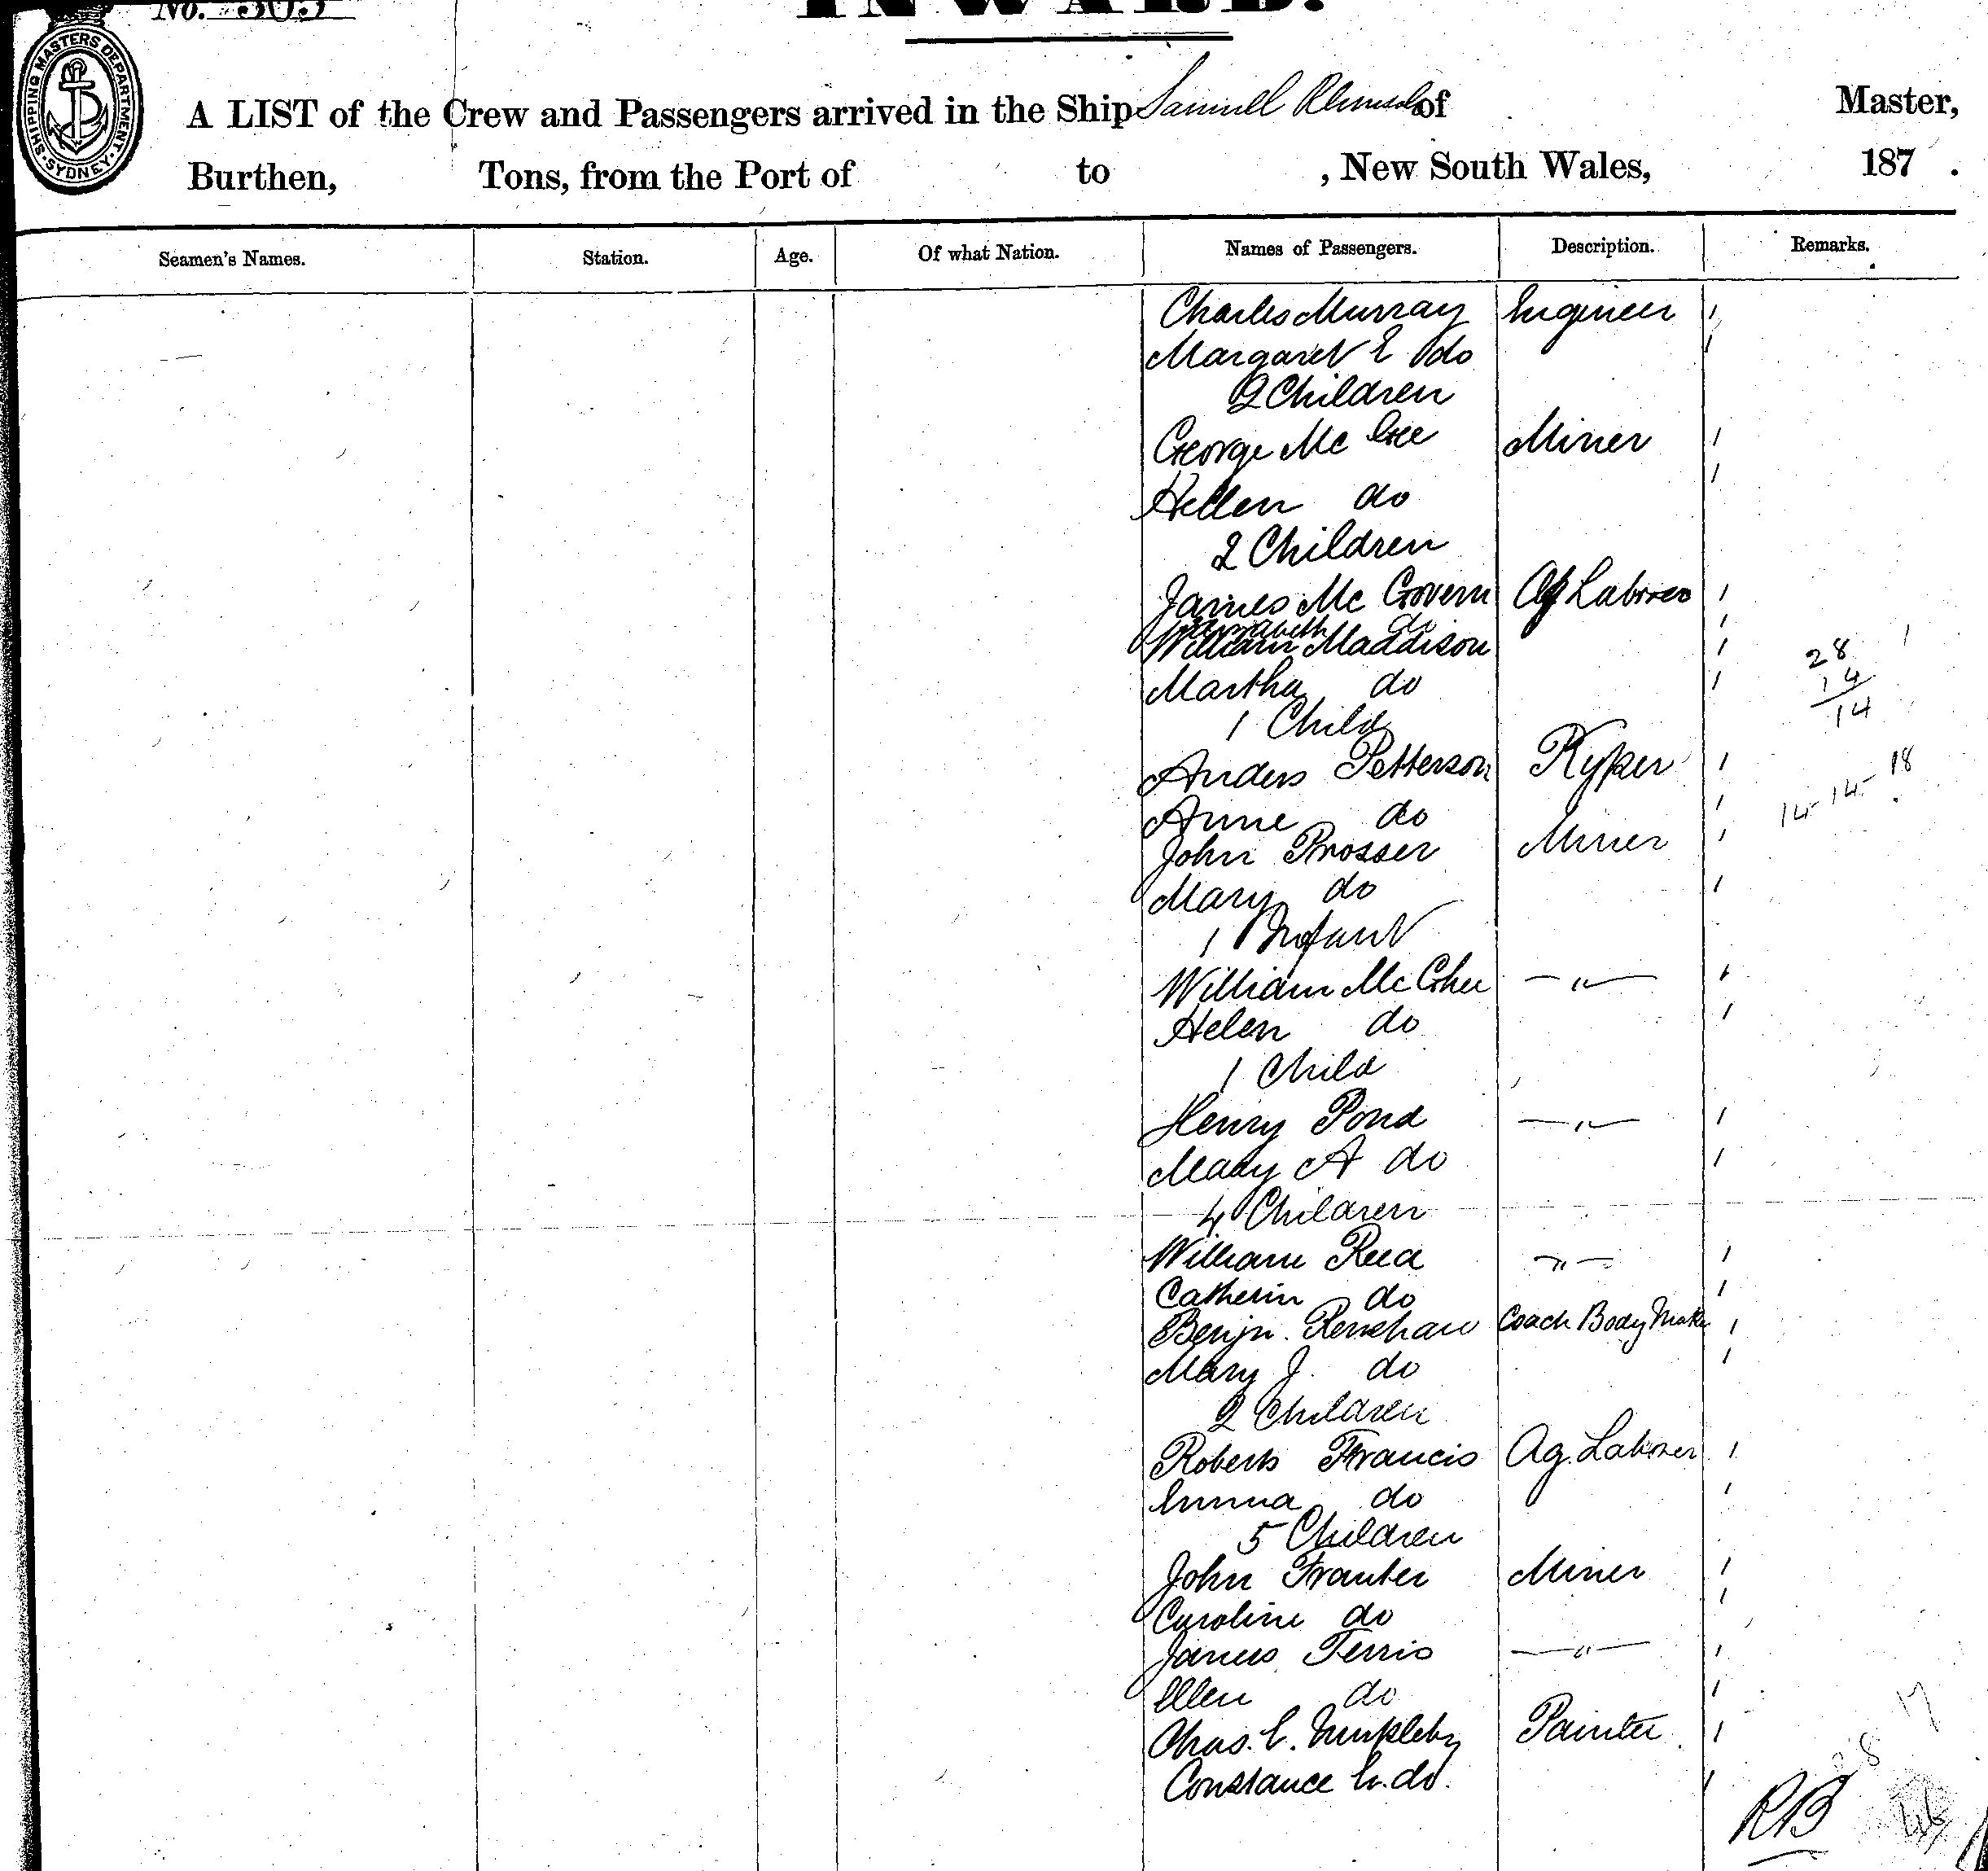 No. 303
INWARD.
SHIPPING MASTERS DEPARTMENT SYDNEY
A LIST of the Crew and Passengers arrived in the Ship Samuel of Master,
Burthen, Tons, from the Port of to , New South Wales, 187 .
Seamen's Names. Station. Age. Of what Nation. Names of Passengers. Description. Remarks.
Charles Murray Engineer
Margaret E do
2 Children
George Mc Gee Miner
Hellen do
2 Children
James Mc Govern Ag Laborer
Elizabeth do
William Maddison
Martha do
1 Child
28
14
14
Anders Petterson Ryper
Anne do
14-14- 18
John Prosser Miner
Mary do
1 Infant
William Mc Ghee — " —
Helen do
1 Child
Henry Pond — " —
Mary A do
4 Children
William Reed — " —
Catherin do
Benjn. Renshaw Coach Body Maker
Mary J. do
2 Children
Roberts Francis Ag. Laborer
Emma do
5 Children
John Tranter Miner
Caroline do
James Ferris — " —
Ellen do
Chas. E. Painter
Constance E. do.
17
RB